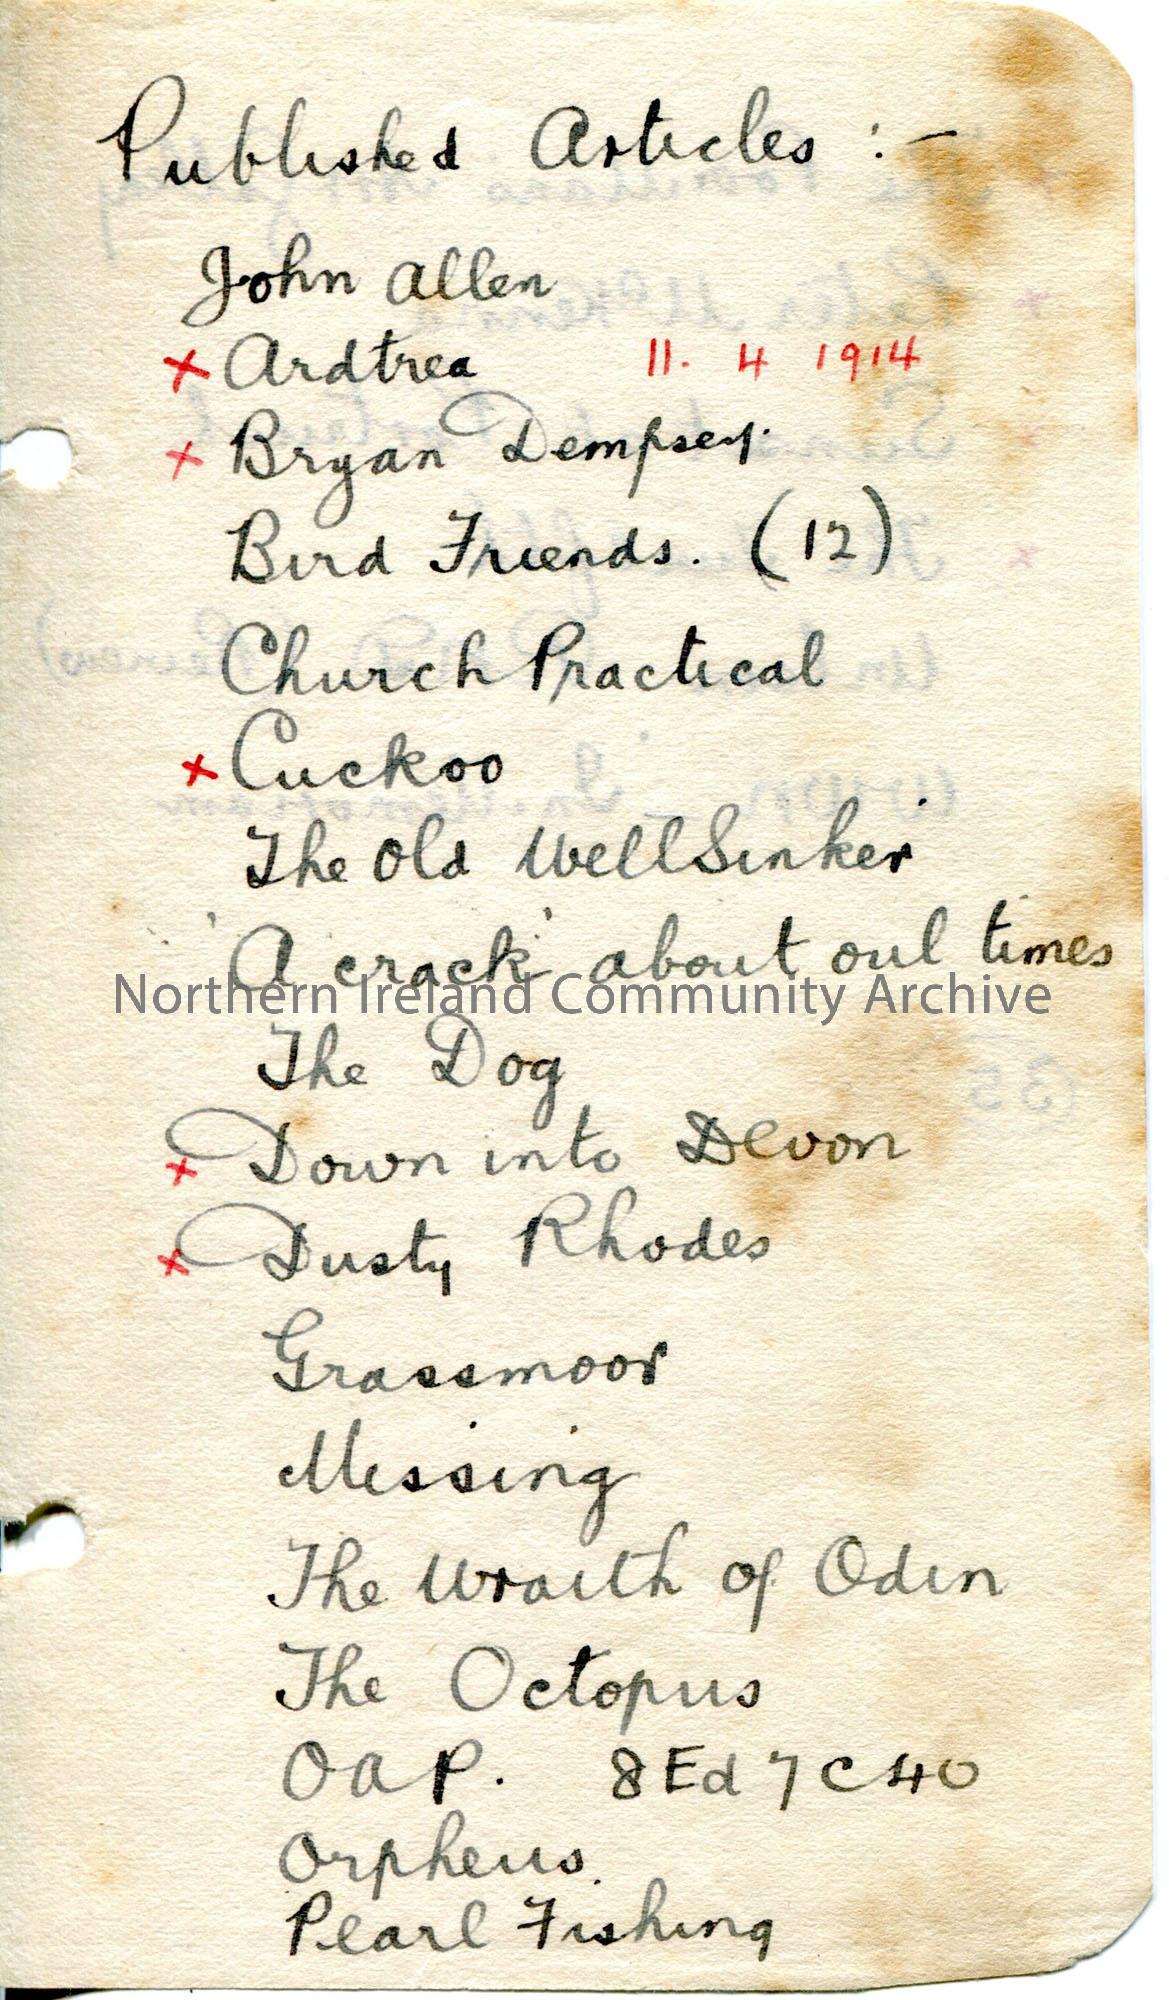 Published Articles :-
John Allen
x Ardtrea 11. 4 1914
x Bryan Dempsey.
Bird Friends. (12)
Church Practical
x Cuckoo
The Old Well Sinker
'A crack' about oul times
Northern Ireland Community Archive
The Dog
x Down into Devon
x Dusty Rhodes
Grassmoor
Missing
The Wraith of Odin
The Octopus
OAP. 8 Ed 7 C 40
Orpheus.
Pearl Fishing